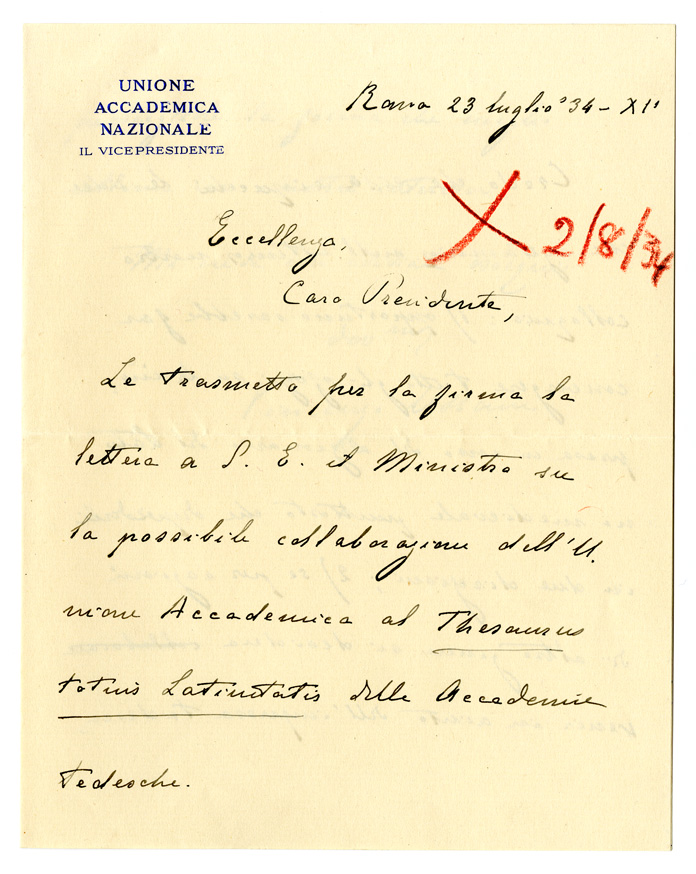 UNIONE
ACCADEMICA
NAZIONALE
IL VICEPRESIDENTE
Roma 23 luglio '34 - XIIº
2/8/34
Eccellenza,
Caro Presidente,
Le trasmetto per la firma la
lettera a S. E. il Ministro su
la possibile collaborazione dell'U.
nione Accademica al Thesaurus
totius Latinitatis delle Accademie
Tedesche.